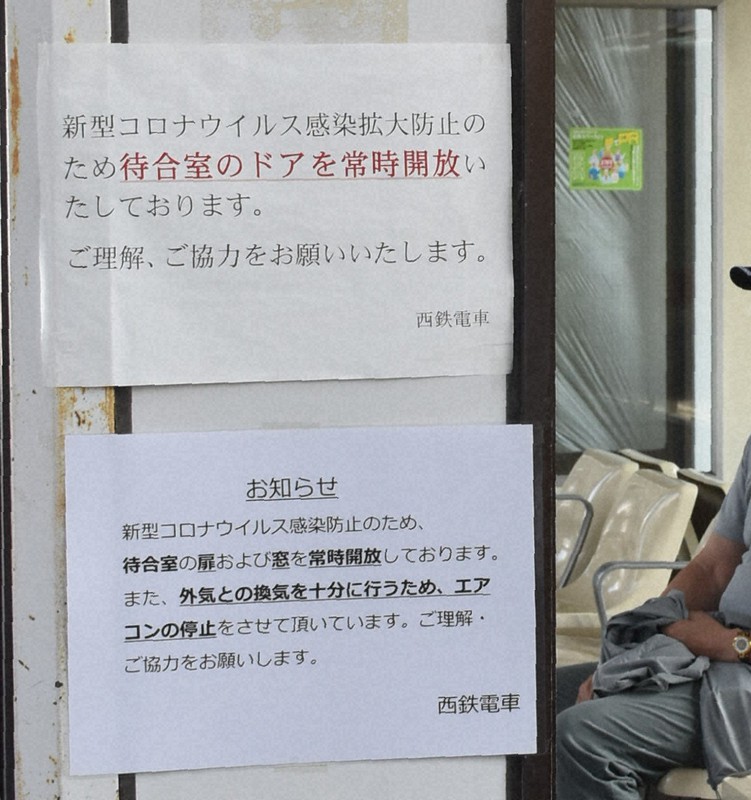 新型コロナウイルス感染拡大防止の
ため待合室のドアを常時開放い
たしております。
ご理解、ご協力をお願いいたします。
西鉄電車
お知らせ
新型コロナウイルス感染防止のため、
待合室の扉および窓を常時開放しております。
また、外気との換気を十分に行うため、エア
コンの停止をさせて頂いています。ご理解・
ご協力をお願いします。
西鉄電車